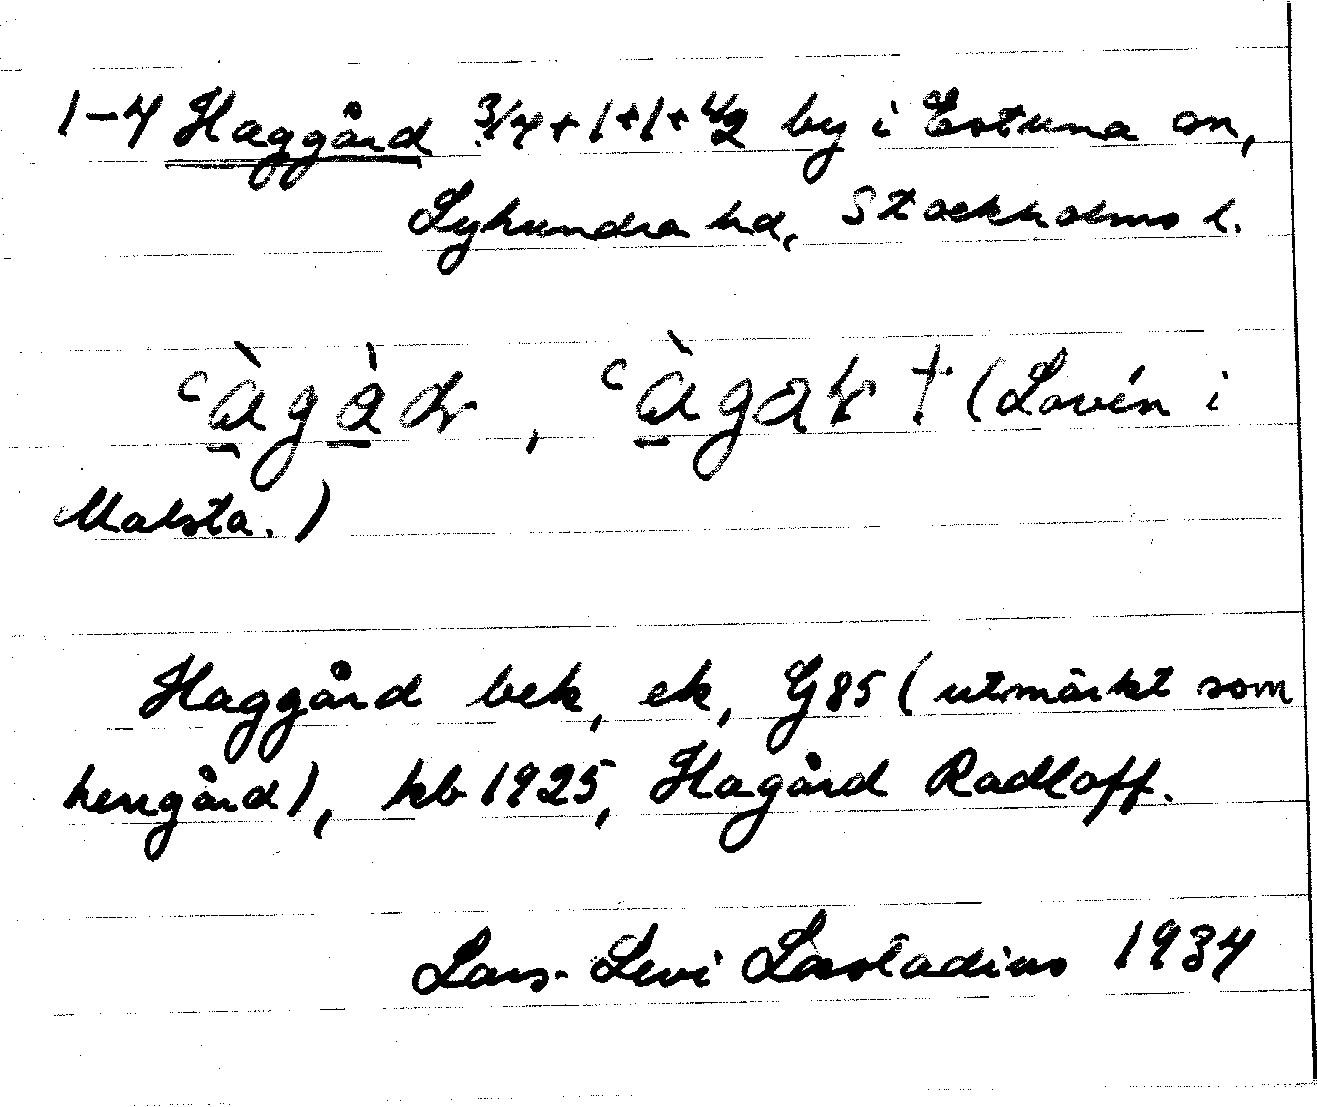 1-4 Haggård 3/4+1+1+1/2 by i Estuna sn,
Lyhundra hd, Stockholms l.
(Lovén i
Malsta.)
Haggård bek, ek, G85 (utmärkt som
herrgård), kb 1925, Hagård Radloff.
Lars-Levi Læstadius 1934